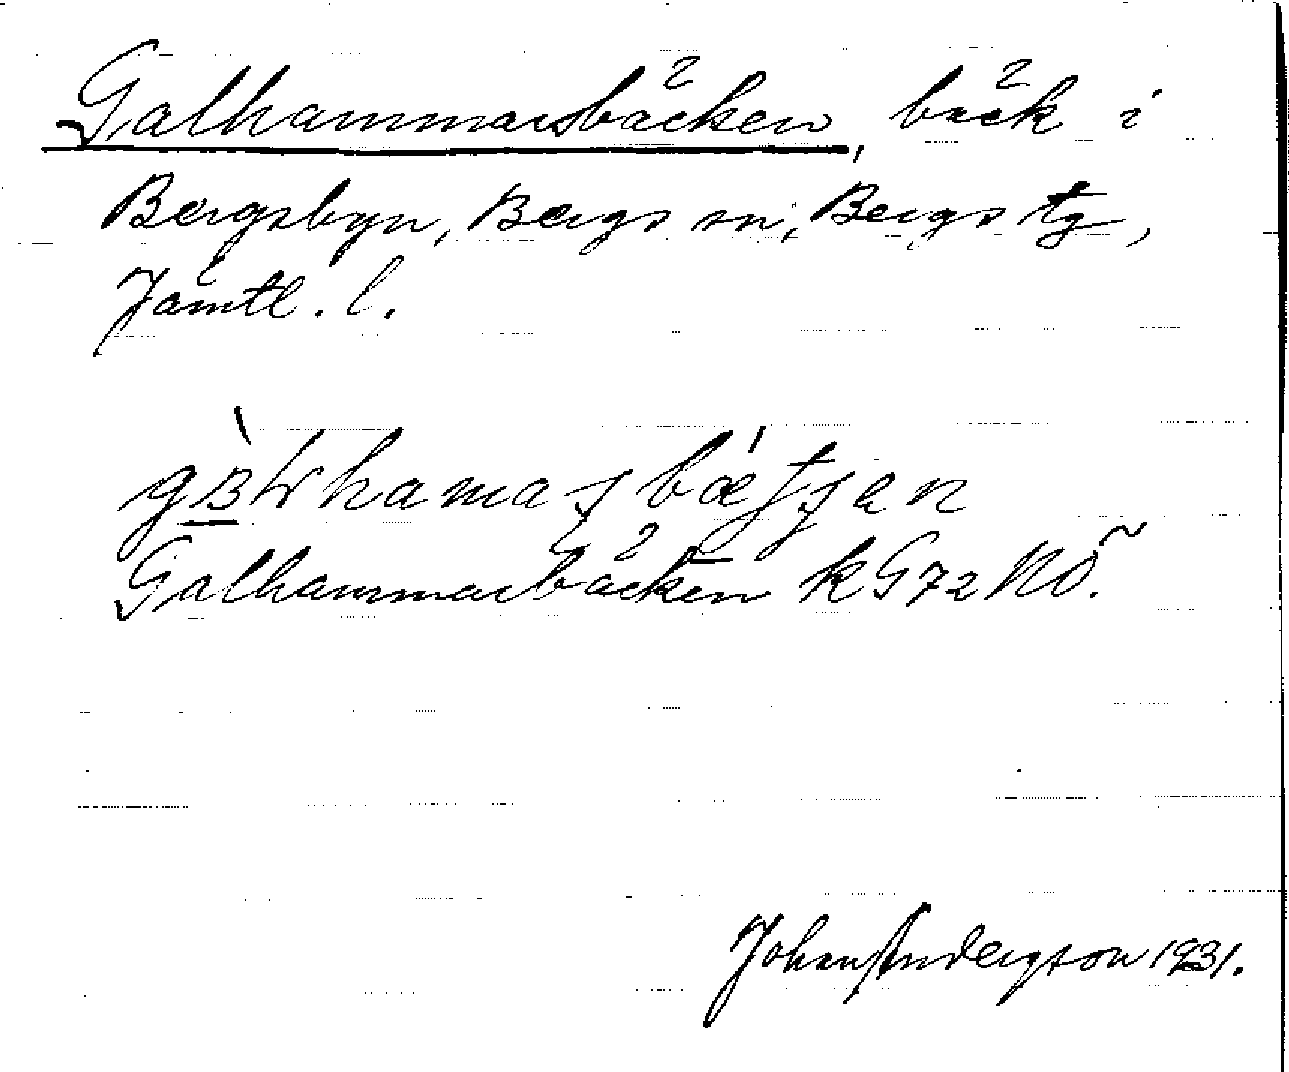 Galhammarsbäcken, bäck i
Bergsbyn, Bergs sn, Bergs tg,
Jämtl. l.
Galhammarbäcken kG72NO.
Johan Anderson 1931.